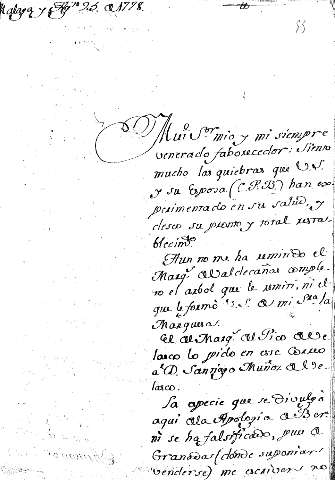 Malaga y Ag.to 25. de 1778.
55
Mui S.or mio y mi siempre
venerado faborecedor: Siento
mucho las quiebras que V.S.
y su Esposa (C.P.B.) han ex-
perimentado en su salud, y
deseo su pronto, y total resta-
blecim.to
Aun no me ha remitido el
Marq.s de Valdecañas comple-
to el arbol que le remiti, ni el
que le formó V.S. de mi S.ra la
Marquesa.
El del Marq.s del Pico de Ve-
lasco lo pido en este Correo
a D. Santiago Muñoz de Ve-
lasco.
La especie que se divulgó
aqui de la Apologia de Ber-
ni se ha falsificado, pues de
Granada (donde suponian
venderse) me escriven no